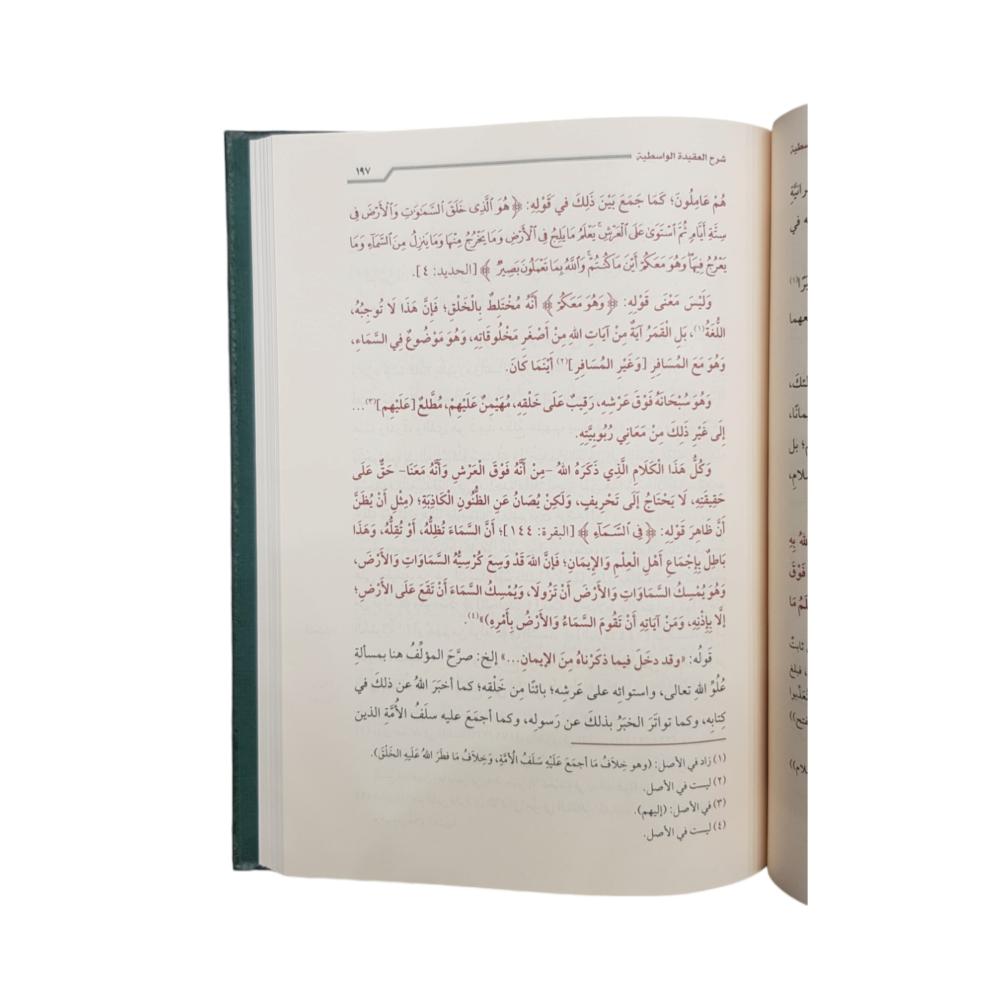 شرح العقيدة الواسطية
١٩٧
هُمْ عَامِلُونَ؛ كَمَا جَمَعَ بَيْنَ ذَلِكَ في قَوْلِهِ: ﴿هُوَ ٱلَّذِى خَلَقَ ٱلسَّمَٰوَٰتِ وَٱلْأَرْضَ فِى
سِتَّةِ أَيَّامٍ ثُمَّ ٱسْتَوَىٰ عَلَى ٱلْعَرْشِ يَعْلَمُ مَا يَلِجُ فِى ٱلْأَرْضِ وَمَا يَخْرُجُ مِنْهَا وَمَا يَنزِلُ مِنَ ٱلسَّمَآءِ وَمَا
يَعْرُجُ فِيهَا وَهُوَ مَعَكُمْ أَيْنَ مَا كُنتُمْ وَٱللَّهُ بِمَا تَعْمَلُونَ بَصِيرٌ﴾ [الحديد: ٤].
وَلَيْسَ مَعْنَى قَوْلِهِ: ﴿وَهُوَ مَعَكُمْ﴾ أَنَّهُ مُخْتَلِطٌ بِالْخَلْقِ؛ فَإِنَّ هَذَا لَا تُوجِبُهُ،
اللُّغَةُ(١)، بَلِ القَمَرُ آيَةٌ مِنْ آيَاتِ اللهِ مِنْ أَصْغَرِ مَخْلُوقَاتِهِ، وَهُوَ مَوْضُوعٌ فِي السَّمَاءِ،
وَهُوَ مَعَ المُسَافِرِ [وَغَيْرِ المُسَافِرِ](٢) أَيْنَمَا كَانَ.
وَهُوَ سُبْحَانَهُ فَوْقَ عَرْشِهِ، رَقِيبٌ عَلَى خَلْقِهِ، مُهَيْمِنٌ عَلَيْهِمْ، مُطَّلِعٌ [عَلَيْهِم](٣)...
إِلَى غَيْرِ ذَلِكَ مِنْ مَعَانِي رُبُوبِيَّتِهِ.
وَكُلُّ هَذَا الْكَلَامِ الَّذِي ذَكَرَهُ اللهُ -مِنْ أَنَّهُ فَوْقَ الْعَرْشِ وَأَنَّهُ مَعَنَا- حَقٌّ عَلَى
حَقِيقَتِهِ، لَا يَحْتَاجُ إِلَى تَحْرِيفٍ، وَلَكِنْ يُصَانُ عَنِ الظُّنُونِ الْكَاذِبَةِ؛ (مِثْلِ أَنْ يُظَنَّ
أَنَّ ظَاهِرَ قَوْلِهِ: ﴿فِى ٱلسَّمَآءِ﴾ [البقرة: ١٤٤]؛ أَنَّ السَّمَاءَ تُظِلُّهُ، أَوْ تُقِلُّهُ، وَهَذَا
بَاطِلٌ بِإِجْمَاعِ أَهْلِ الْعِلْمِ وَالإِيمَانِ؛ فَإِنَّ اللهَ قَدْ وَسِعَ كُرْسِيُّهُ السَّمَاوَاتِ وَالأَرْضَ،
وَهُوَ يُمْسِكُ السَّمَاوَاتِ وَالأَرْضَ أَنْ تَزُولَا، وَيُمْسِكُ السَّمَاءَ أَنْ تَقَعَ عَلَى الأَرْضِ؛
إِلَّا بِإِذْنِهِ، وَمَنْ آيَاتِهِ أَنْ تَقُومَ السَّمَاءُ وَالأَرْضُ بِأَمْرِهِ)»(٤).
قَولُه: «وقد دخَلَ فيما ذكَرْناهُ مِنَ الإيمانِ...» إلخ: صرَّحَ المؤلِّفُ هنا بمسألةِ
عُلُوِّ اللهِ تعالى، واستوائِه على عَرشِه؛ بائنًا مِن خَلْقِه؛ كما أخبَرَ اللهُ عن ذلكَ في
كِتابِه، وكما تواتَرَ الخبَرُ بذلكَ عن رَسولِه، وكما أجمَعَ عليه سلَفُ الأُمَّةِ الذين
(١) زاد في الأصل: (وهو خِلَافُ مَا أجمَعَ عَلَيْهِ سَلَفُ الْأُمَّةِ، وَخِلَافُ مَا فطَرَ اللهُ عَلَيهِ الخَلْقَ).
(٢) ليست في الأصل.
(٣) في الأصل: (إليهم).
(٤) ليست في الأصل.